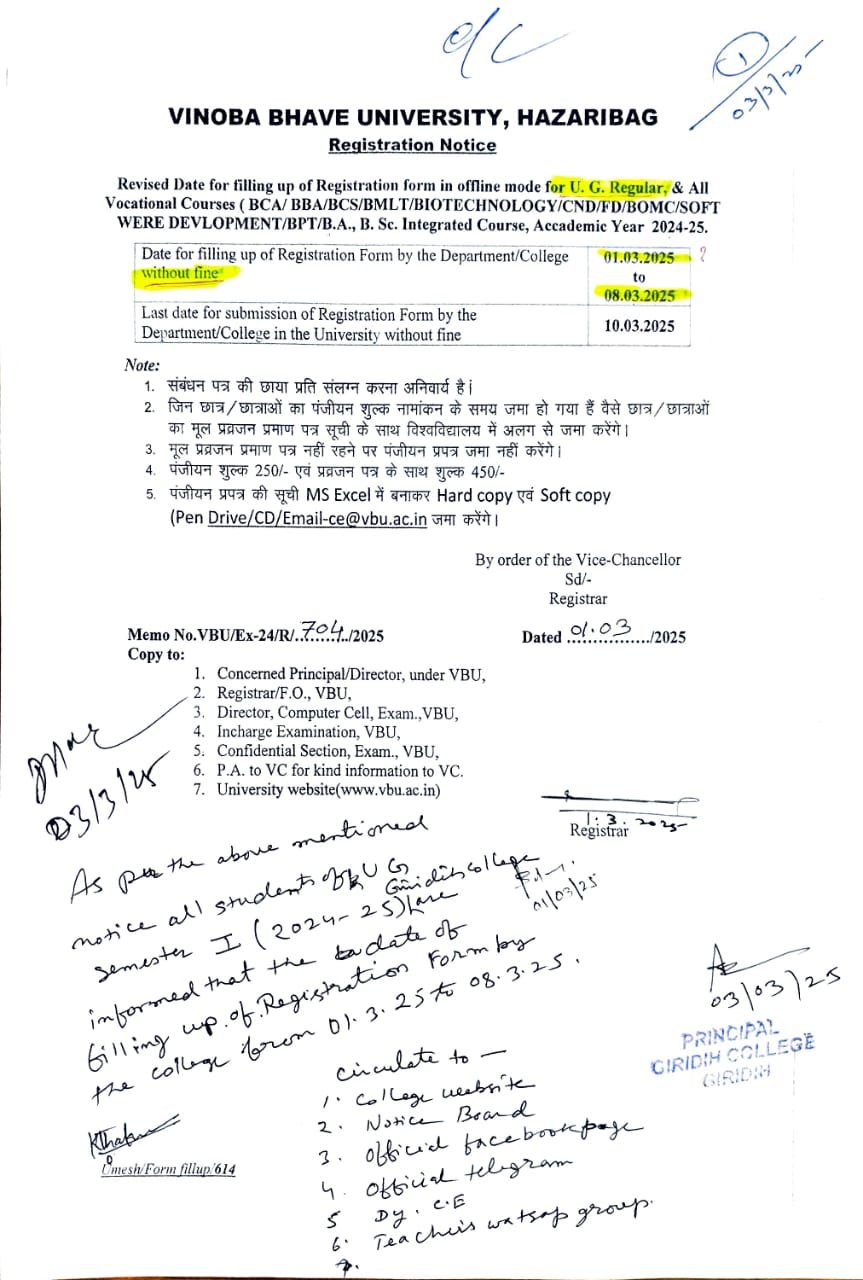 O/C
1
03/3/25
VINOBA BHAVE UNIVERSITY, HAZARIBAG
Registration Notice
Revised Date for filling up of Registration form in offline mode for U. G. Regular, & All
Vocational Courses ( BCA/ BBA/BCS/BMLT/BIOTECHNOLOGY/CND/FD/BOMC/SOFT
WERE DEVLOPMENT/BPT/B.A., B. Sc. Integrated Course, Accademic Year 2024-25.
Date for filling up of Registration Form by the Department/College
without fine
01.03.2025 ?
to
08.03.2025
Last date for submission of Registration Form by the
Department/College in the University without fine
10.03.2025
Note:
1. संबंधन पत्र की छाया प्रति संलग्न करना अनिवार्य है।
2. जिन छात्र/छात्राओं का पंजीयन शुल्क नामांकन के समय जमा हो गया हैं वैसे छात्र/छात्राओं
का मूल प्रव्रजन प्रमाण पत्र सूची के साथ विश्वविद्यालय में अलग से जमा करेंगे।
3. मूल प्रव्रजन प्रमाण पत्र नहीं रहने पर पंजीयन प्रपत्र जमा नहीं करेंगे।
4. पंजीयन शुल्क 250/- एवं प्रव्रजन पत्र के साथ शुल्क 450/-
5. पंजीयन प्रपत्र की सूची MS Excel में बनाकर Hard copy एवं Soft copy
(Pen Drive/CD/Email-ce@vbu.ac.in जमा करेंगे।
By order of the Vice-Chancellor
Sd/-
Registrar
Memo No.VBU/Ex-24/R/..704../2025
Dated 01.03/2025
Copy to:
1. Concerned Principal/Director, under VBU,
2. Registrar/F.O., VBU,
3. Director, Computer Cell, Exam.,VBU,
4. Incharge Examination, VBU,
5. Confidential Section, Exam., VBU,
6. P.A. to VC for kind information to VC.
7. University website(www.vbu.ac.in)
03/3/25
1.3.2025
Registrar
01/03/25
As per the above mentioned
notice all students of UG Giridih College
semester I (2024-25) are
informed that the date of
filling up of Registration Form by
the college from 01.3.25 to 08.3.25.
03/03/25
PRINCIPAL
GIRIDIH COLLEGE
GIRIDIH
circulate to —
1. College website
2. Notice Board
3. Official facebook page
4. Official telegram
5 Dy. C.E
6. Teachers watsap group.
7.
KThakur
Umesh/Form fillup/614